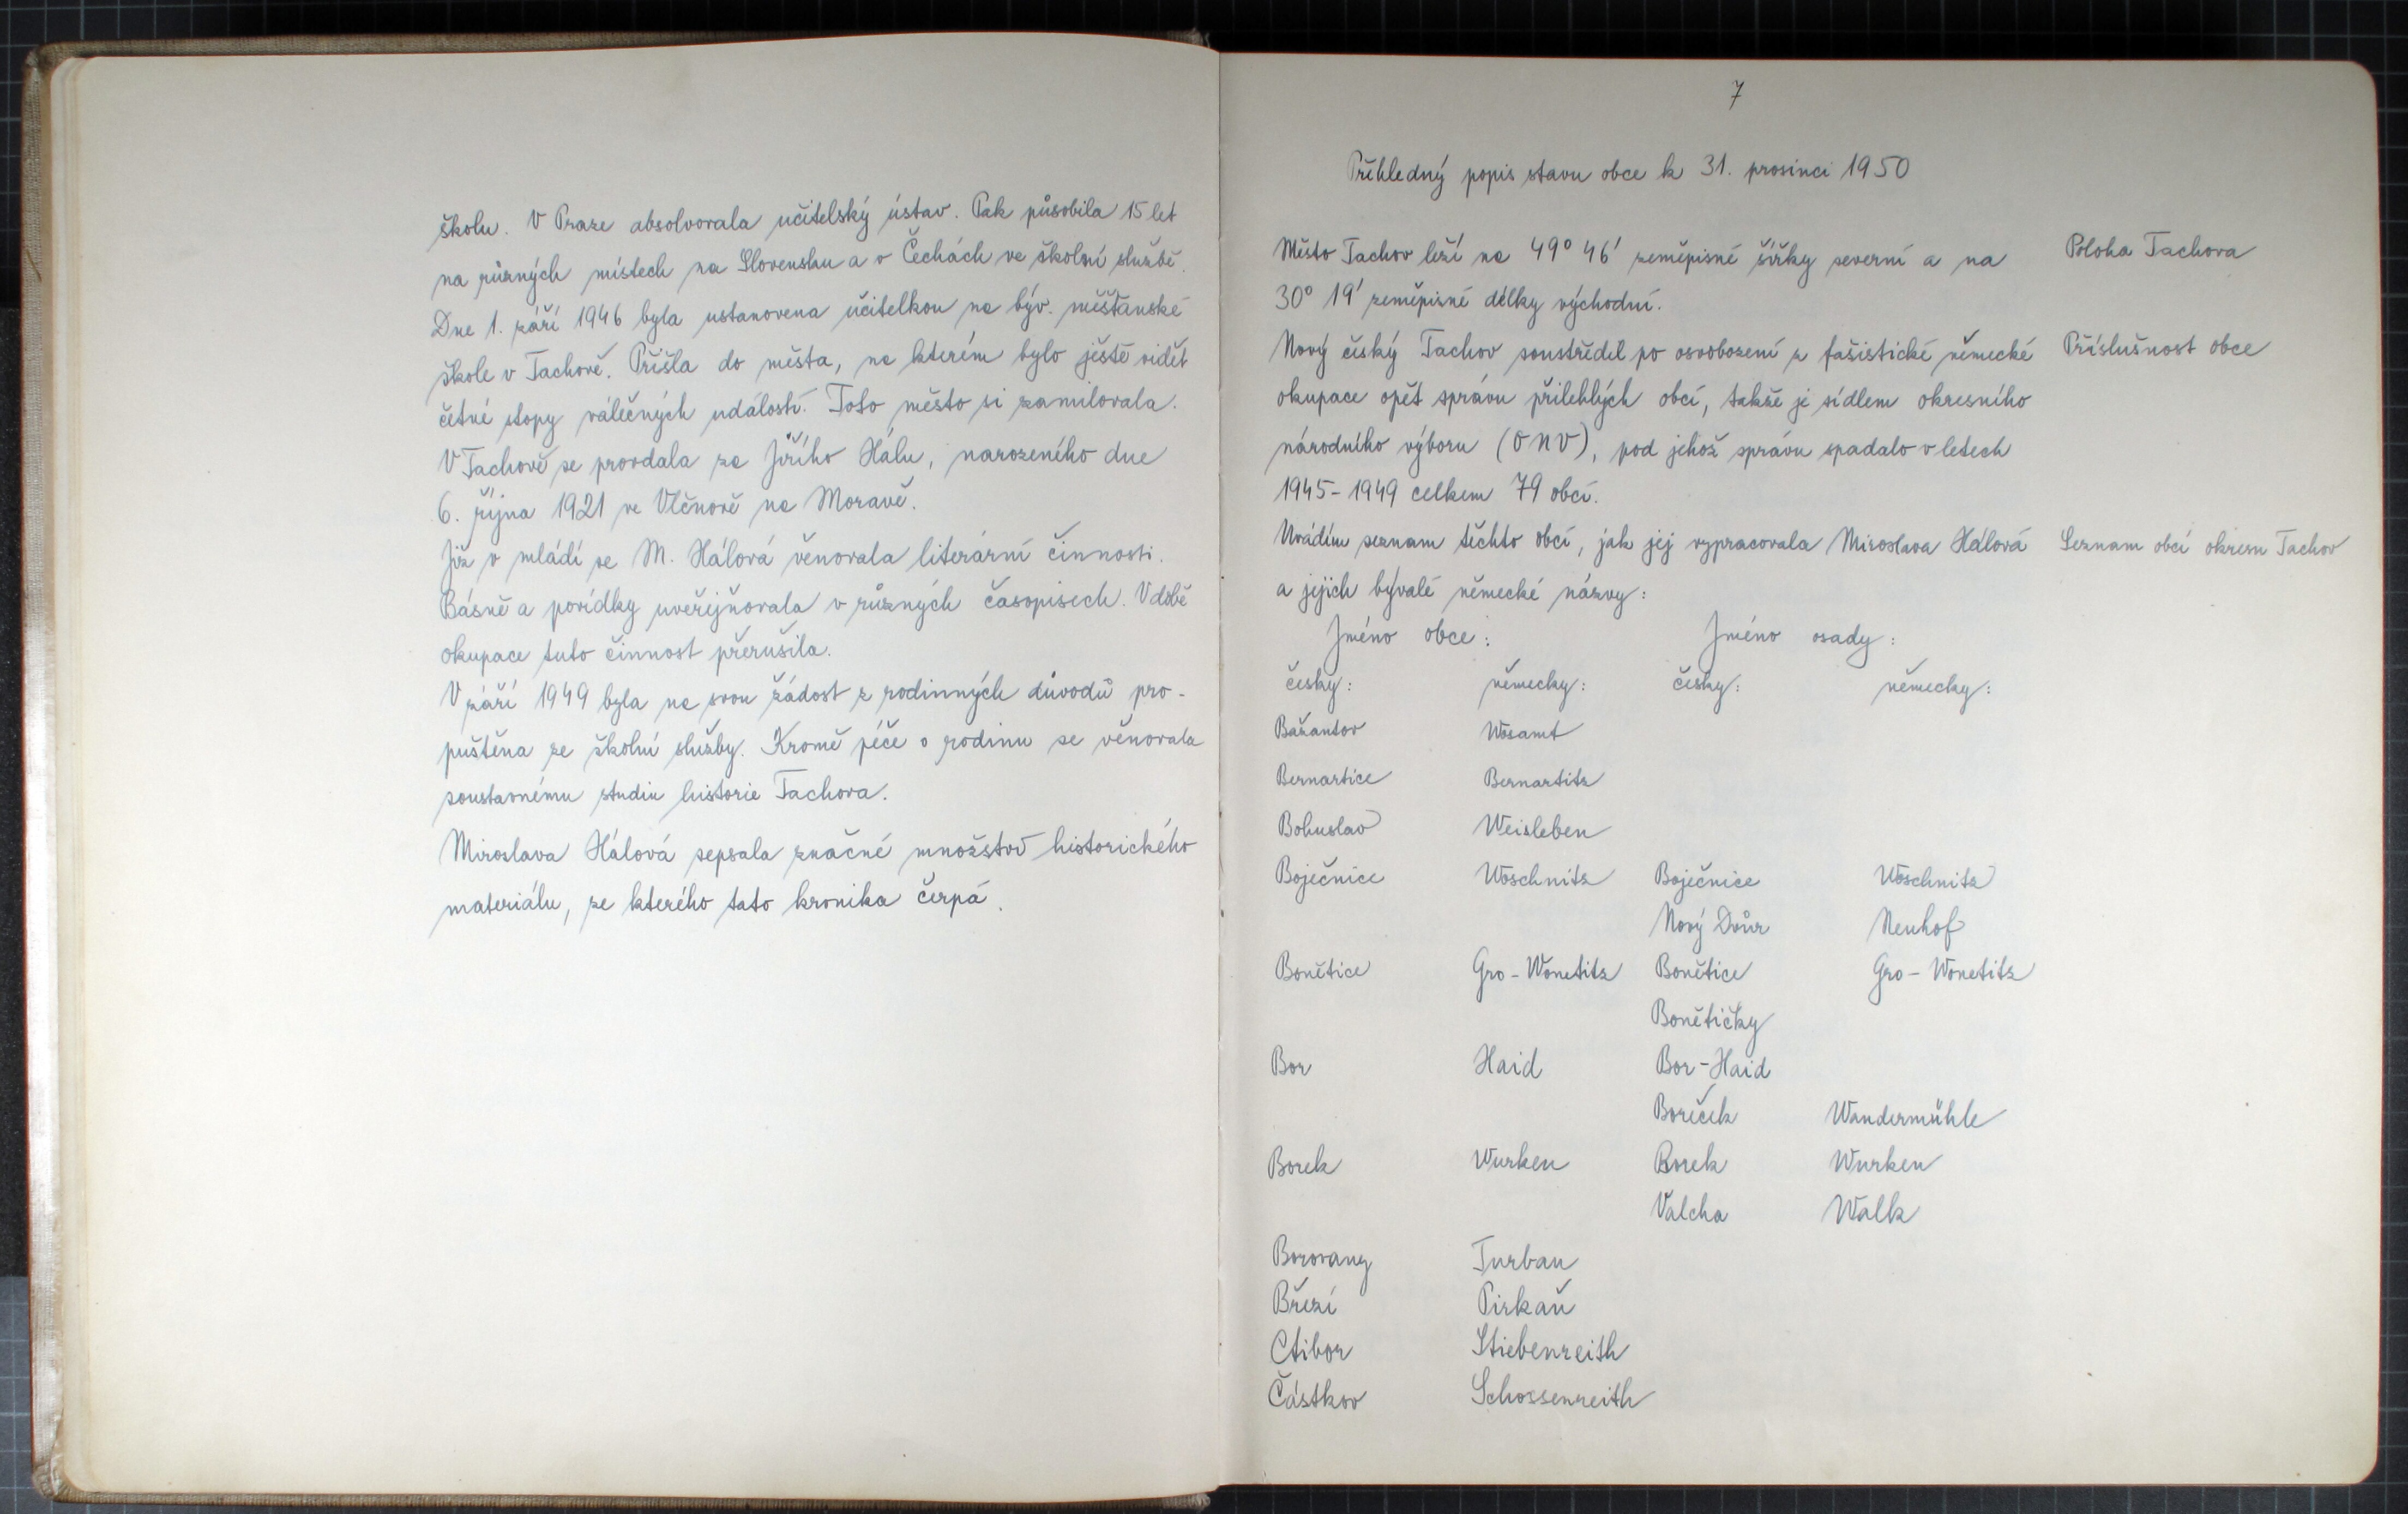 školu. V Praze absolvovala učitelský ústav. Pak působila 15 let
na různých místech na Slovensku a v Čechách ve školní službě.
Dne 1. září 1946 byla ustanovena učitelkou na býv. měšťanské
škole v Tachově. Přišla do města, na kterém bylo ještě vidět
četné stopy válečných událostí. Toto město si zamilovala.
V Tachově se provdala za Jiřího Hálu, narozeného dne
6. října 1921 ve Vlčnově na Moravě.
Již v mládí se M. Hálová věnovala literární činnosti.
Básně a povídky uveřejňovala v různých časopisech. V době
okupace tuto činnost přerušila.
V září 1949 byla na svou žádost z rodinných důvodů pro-
puštěna ze školní služby. Kromě péče o rodinu se věnovala
soustavnému studiu historie Tachova.
Miroslava Hálová sepsala značné množství historického
materiálu, ze kterého tato kronika čerpá.
7
Přehledný popis stavu obce k 31. prosinci 1950
Město Tachov leží na 49° 46' zeměpisné šířky severní a na
Poloha Tachova
30° 19' zeměpisné délky východní.
Nový český Tachov soustředil po osvobození z fašistické německé
Příslušnost obce
okupace opět správu přilehlých obcí, takže je sídlem okresního
národního výboru (ONV), pod jehož správu spadalo v letech
1945-1949 celkem 79 obcí.
Uvádím seznam těchto obcí, jak jej vypracovala Miroslava Hálová
Seznam obcí okresu Tachov
a jejich bývalé německé názvy:
Jméno obce: Jméno osady:
česky: německy: česky: německy:
Bažantov Wosamt
Bernartice Bernartitz
Bohuslav Weisleben
Boječnice Wöschnitz Boječnice Wöschnitz
Nový Dvůr Neuhof
Bonětice Gro-Wonetitz Bonětice Gro-Wonetitz
Bonětičky
Bor Haid Bor-Haid
Boreček Wandermühle
Borek Wurken Borek Wurken
Valcha Walk
Borovany Turban
Březí Pirkaň
Ctibor Stiebenreith
Částkov Schossenreith